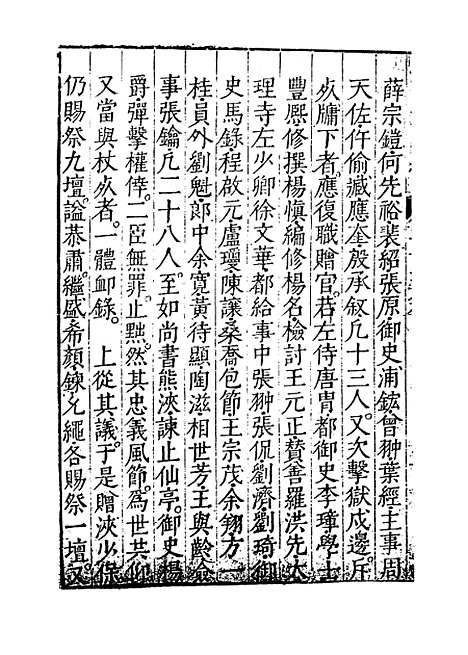 薛宗鎧何先裕裴紹張原御史浦鋐曾翀葉經主事周
天佐仵偷臧應奎殷承叙凡十三人又次擊獄戍邊斥
死牖下者應復職贈官若左侍唐冑都御史李璋學士
豐熙修撰楊慎編修楊名檢討王元正贊善羅洪先大
理寺左少卿徐文華都給事中張翀張侃劉濟劉琦御
史馬錄程啟元盧瓊陳讓桑喬包節王宗茂余翱方一
桂員外劉魁郎中余寬黃待顯陶滋相世芳王與齡僉
事張鑰凡二十八人至如尚書熊浹諫止仙亭御史楊
爵彈擊權倖二臣無罪止黜然其忠義風節為世共仰
又當與杖死者一體卹錄　上從其議于是贈浹少保
仍賜祭九壇謚恭肅繼盛希顏鍊允繩各賜祭一壇又